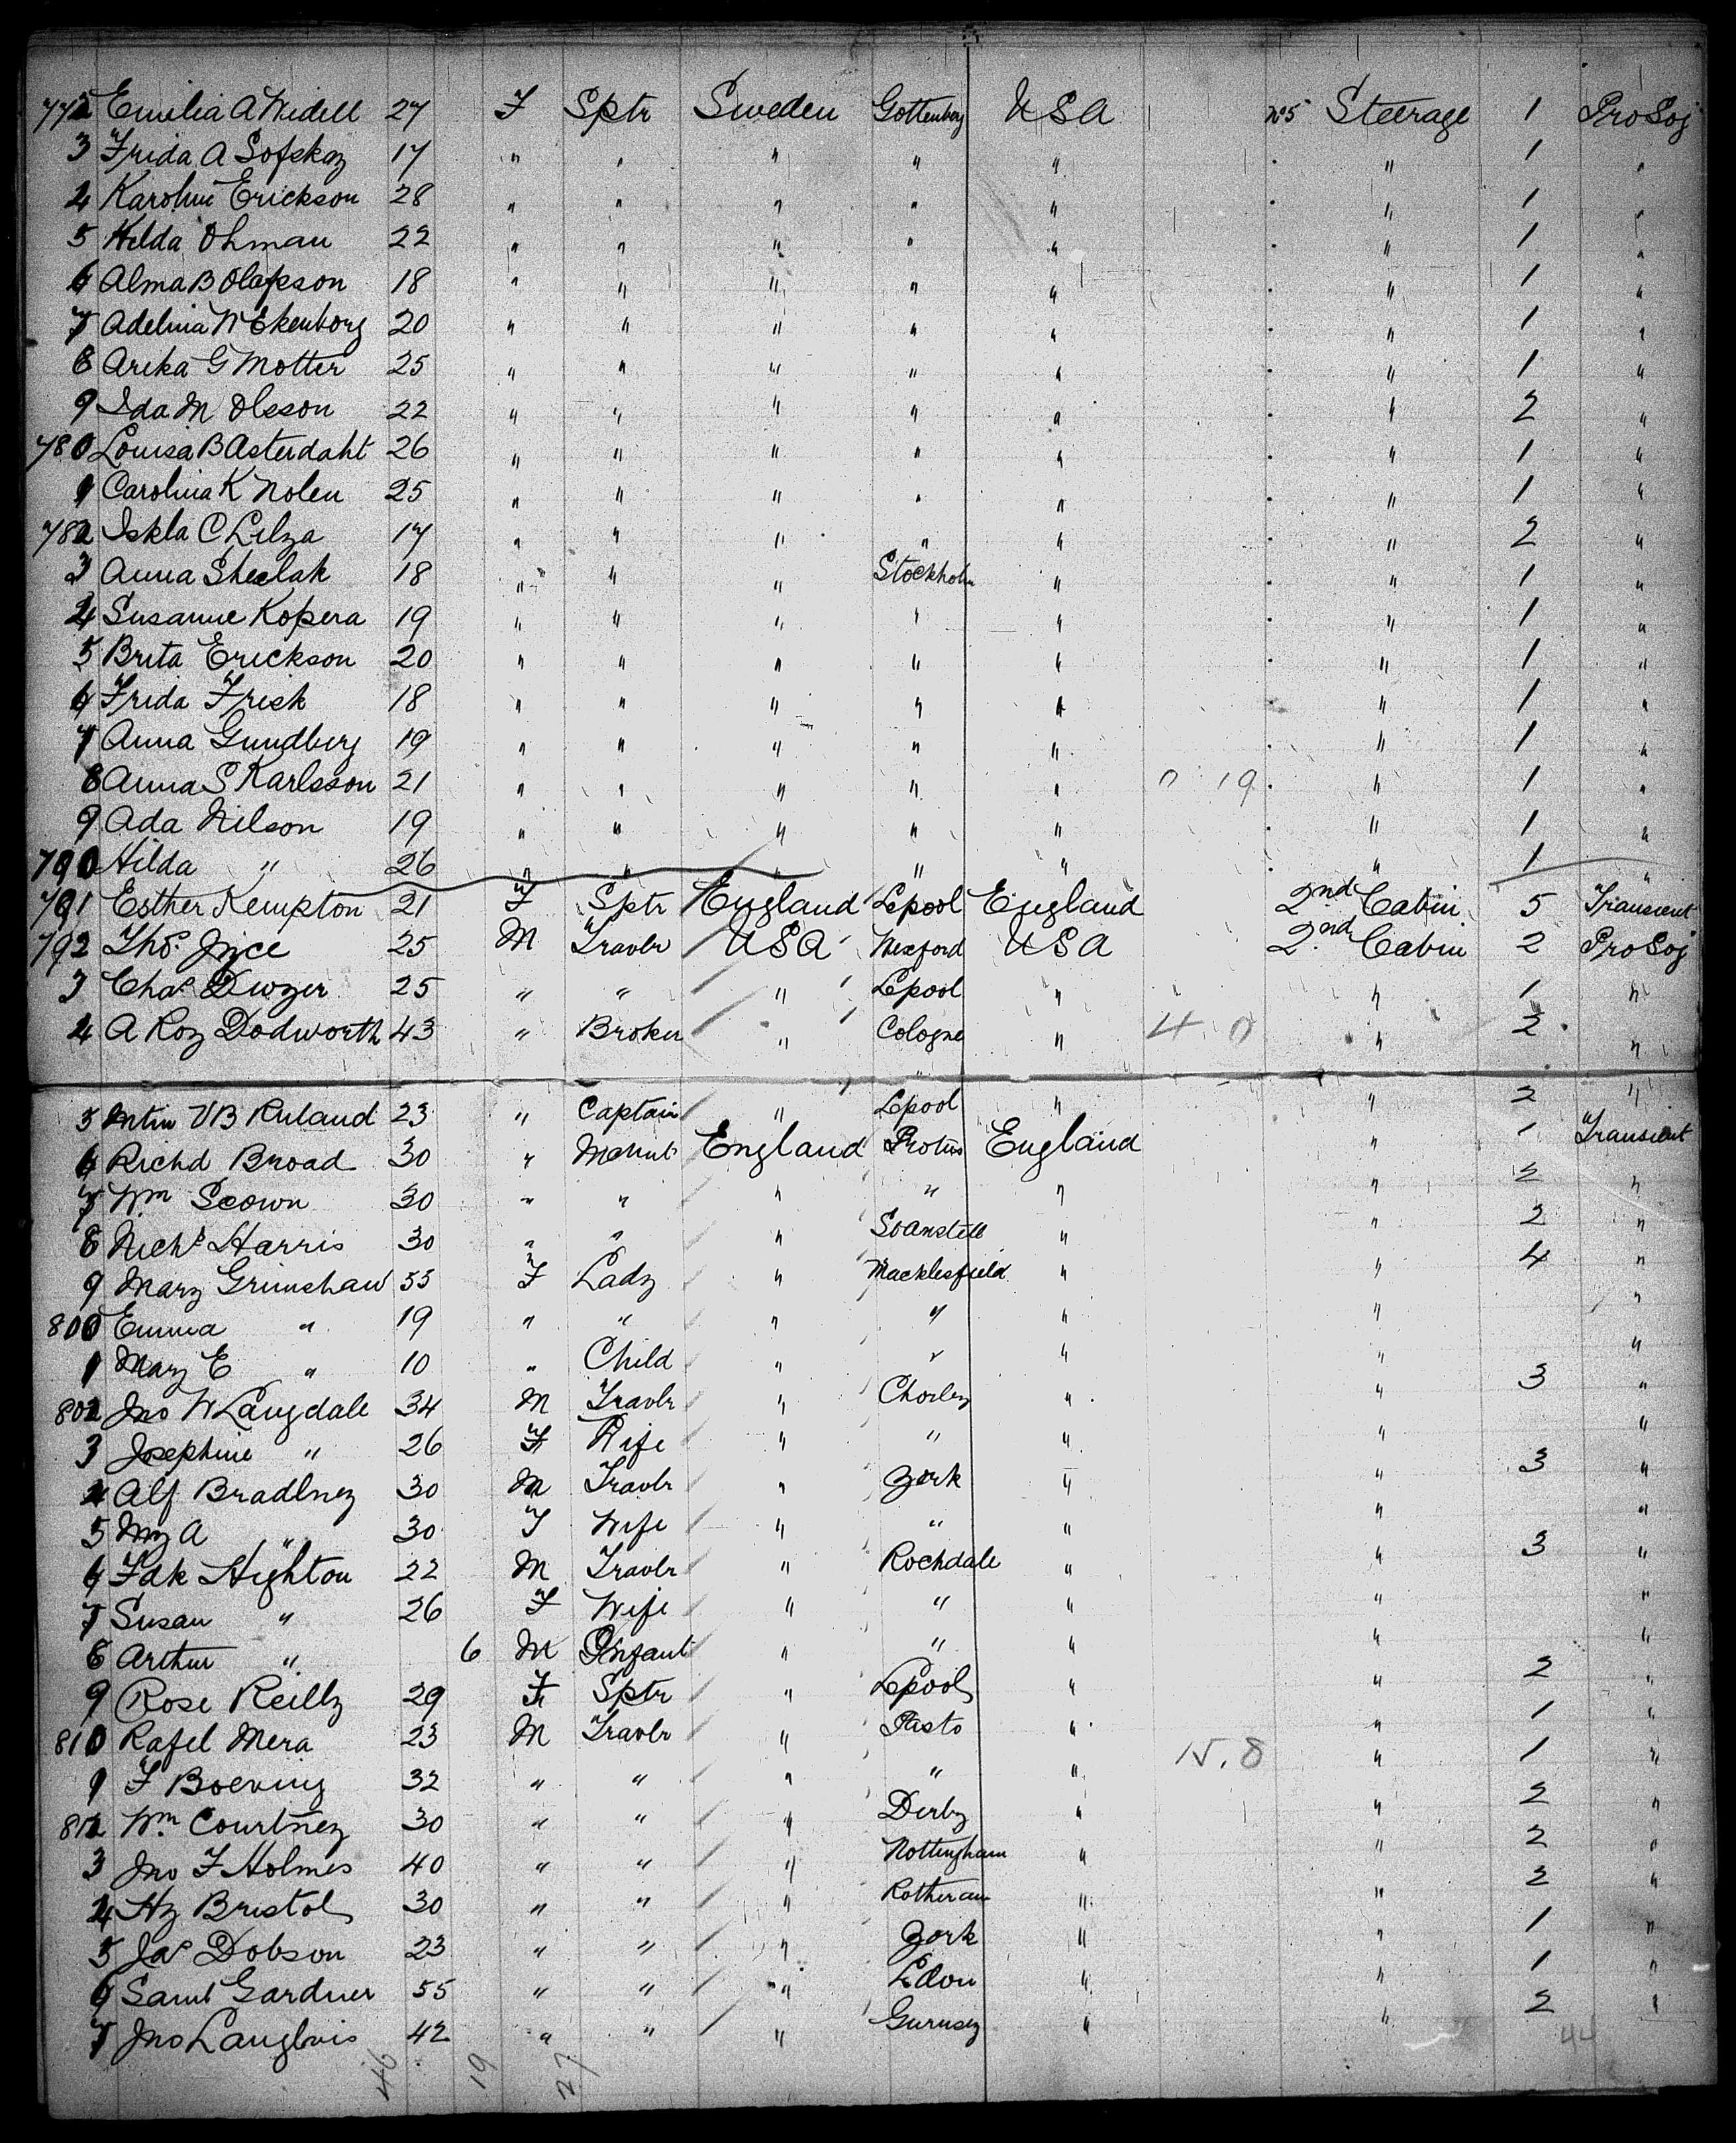 772 Emilia A Widell 27 F Sptr Sweden Gottenberg USA No 5 Steerage 1 Pro Soj
3 Frida A 17 " " " " " " 1 "
4 Karoline Erickson 28 " " " " " " 1 "
5 Hilda Ohman 22 " " " " " " 1 "
6 Alma B Olafsson 18 " " " " " " 1 "
7 Adelina W Ekenborg 20 " " " " " " 1 "
8 Arika G Motter 25 " " " " " " 1 "
9 Ida M Olsson 22 " " " " " " 2 "
780 Louisa B Asterdaht 26 " " " " " " 1 "
1 Carolina K Nolen 25 " " " " " " 1 "
782 Iskla C Lilza 17 " " " " " " 2 "
3 Anna Sheelak 18 " " " Stockholm " " 1 "
4 Susanne Kopera 19 " " " " " " 1 "
5 Brita Erickson 20 " " " " " " 1 "
6 Frida Frisk 18 " " " " " " 1 "
7 Anna Gundberg 19 " " " " " " 1 "
8 Anna S Karlsson 21 " " " " " 19 " 1 "
9 Ada Nilson 19 " " " " " " 1 "
790 Hilda " 26 " " " " " " 1 "
791 Esther Kempton 21 F Sptr England Lpool England 2nd Cabin 5 Transient
792 Thos. Joyce 25 M Travlr USA Wexford USA 2nd Cabin 2 Pro Soj
3 Chas Dwyer 25 " " " Lpool " " 1 "
4 A Roy Dodworth 43 " Broker " Cologne " 4 0 " 2 "
5 VB Ruland 23 " Captain " Lpool " " 2 "
6 Richd Broad 30 " Mchnt England England " 1 Transient
7 Wm Scown 30 " " " " " " 2 "
8 Nichs Harris 30 " " " St Anstell " " 2 "
9 Mary Grimshaw 55 F Lady " Macklesfield " " 4 "
800 Emma " 19 " " " " " " "
1 Mary E " 10 " Child " " " " "
802 Jno W Langdale 34 M Travlr " Chorley " " 3 "
3 Josephine " 26 F Wife " " " " "
4 Alf Bradlney 30 M Travlr " York " " 3 "
5 My A " 30 F Wife " " " " "
6 Fdk Highton 22 M Travlr " Rochdale " " 3 "
7 Susan " 26 F Wife " " " " "
8 Arthur " 6 M Infant " " " " "
9 Rose Reilly 29 F Sptr " Lpool " " 2 "
810 Rafel Mera 23 M Travlr " Pasto " " 1 "
1 F Boeving 32 " " " " " 15.8 " 1 "
812 Wm Courtney 30 " " " Derby " " 2 "
3 Jno F Holmes 40 " " " Nottingham " " 2 "
4 Hy Bristol 30 " " " Rotheram " " 2 "
5 Jas Dobson 23 " " " York " " 1 "
6 Saml Gardner 55 " " " Ldon " " 1 "
7 Jno Langlois 42 " " " Gurnsey " " 2 "
46 19 27 44